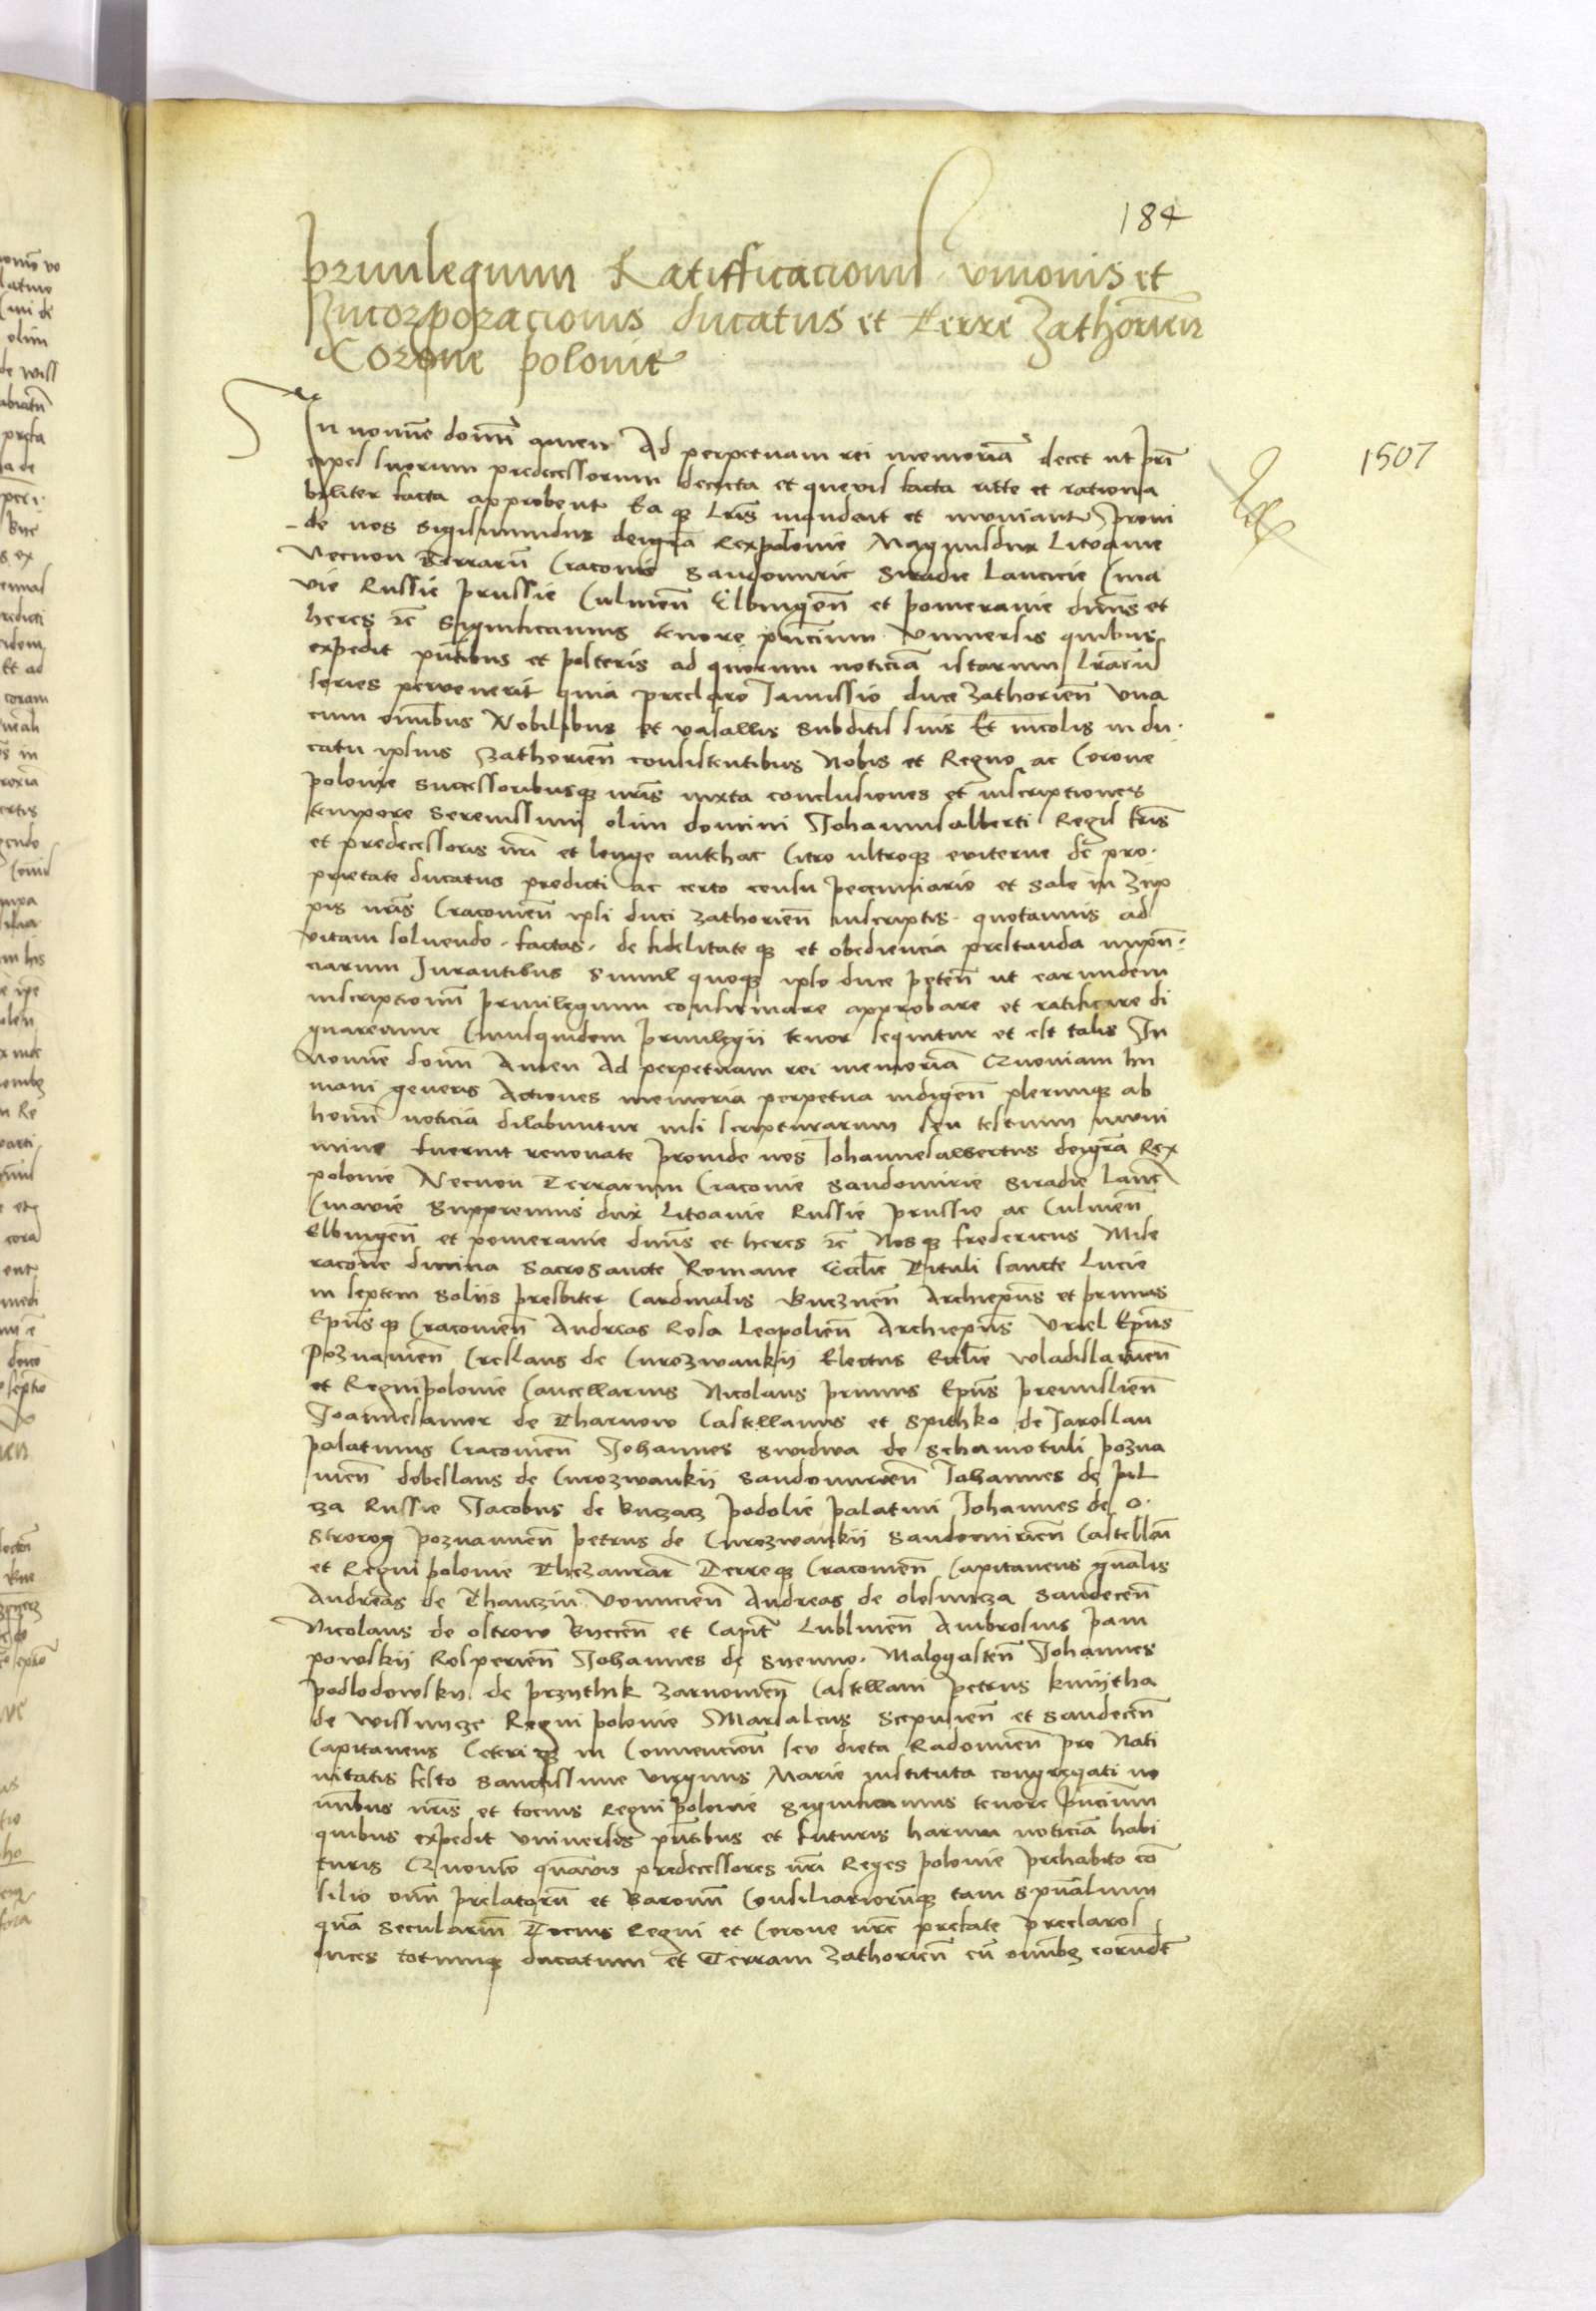 184
privilegium Ratifficacionis Unionis et
Incorporacionis ducatus et Terre Zathoriensis
Corone polonie
1507
In nomine domini amen Ad perpetuam rei memoriam decet ut prin
cipes suorum predecessorum decreta et quevis facta ritte et rationa
biliter facta approbent Ea que lris mandent et muniant Proin
de nos Sigismundus deigra Rex polonie Magnus dux Litvanie
Necnon Terrarum Cracovie Sandomirie Siradie Lancicie Cuia
vie Russie prussie Culmen Elbingen et pomeranie dnus et
heres zc Significamus tenore pntium Universis quibus
expedit pntibus et posteris ad quorum noticiam istarum lrarum
series pervenerit quia preclaro Janussio duce Zathorien una
cum omnibus Nobilibus et vasallis subditis suis Et incolis in du
catu ipsius Zathorien consistentibus Nobis et Regno ac Corone
polonie successoribusque nris iuxta conclusiones et inscriptiones
tempore Serenissimi olim domini Johannisalberti Regis fris
et predecessoris nri et longe antehac Citro ultroque eviterne de pro
prietate ducatus predicti ac certo censu pecuniario et sale in Zup
pis nris Cracovien ipsi duci Zathorien inscriptis quotannis ad
vitam solvendo factas de fidelitate que et obediencia prestanda
ciarum Jurantibus Simul quoque ipso duce peten ut earundem
inscriptionum privilegium confirmare approbare et ratificare di
gnaremur Cuiusquidem privilegii tenor sequitur et est talis In
Nomine domini Amen Ad perpetuam rei memoriam Quoniam hu
mani generis Actiones memoria perpetua indigen plerunque ab
homi noticia dilabuntur nisi scripturarum seu testium muni
mine fuerint renovate proinde nos Johannesalbertus deigra Rex
polonie Necnon Terrarum Cracovie Sandomirie Siradie Lanc
Cuiavie Suppremus dux Litvanie Russie prussie ac Culmen
Elbingen et pomeranie dnus et heres zc Nos que fredericus Mise
racone divina Sacrosancte Romane Ecclie Tituli sancte Lucie
in septem Soliis presbiter Cardinalis Gneznen Archiepus et primas
Epus que Cracovien Andreas Rosa Leopolien Archiepus Uriel Epus
Poznanien Creslaus de Curozwankii Electus Ecclie Wladislavien
et Regni polonie Cancellarius Nicolaus primus Epus premislien
Joannesamor de Tharnow Castellanus et Spithko de Jaroslau
palatinus Cracovien Johannes Swidwa de Schamotuli pozna
nien dobeslaus de Curozwankii Sandomirien Johannes de pil
cza Russie Jacobus de Buczacz podolie palatini Johannes de o
strorog poznanien petrus de Curozwankii Sandomirien Castellani
et Regni polonie Thezaurar Terreque Cracovien Capitaneus gnalis
Andreas de Thanczin Voinicien Andreas de olesnicza Sandecen
Nicolaus de ostrow Byecen et Capit Lublinen Ambrosius pam
powskii Rosperien Johannes de Snenno Malogosten Johannes
podlodowskii de przithik Zarnovien Castellani petrus kmijtha
de wissnicze Regni polonie Marsalcus Scepusien et Sandecen
Capitaneus Ceteri que in Convencion seu dieta Radomien pro Nati
vitatis festo Sanctissime virginis Marie instituta congregati no
minibus nris et tocius Regni polonie Significamus tenore pncium
quibus expedit universis pntibus et futuris harum noticiam habi
turis Quomodo quamvis predecessores nri Reges polonie prehabito con
silio omni prelatorum et Baronum Consiliariorumque tam Spualium
quam Secularium Tocius Regni et Corone nre prefate preclaros
duces totumque ducatum et Terram Zathorien cum omnibus eorundem